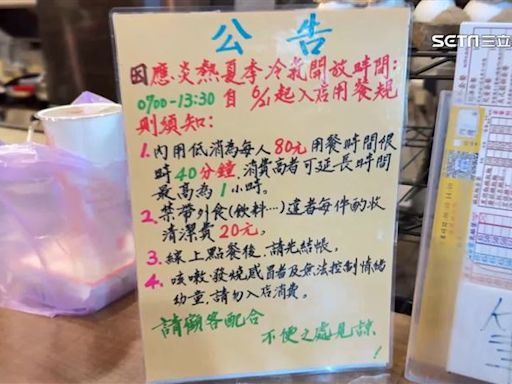 SETN三立
公告
因應炎熱夏季冷氣開放時間:
0700-13:30 自 6/1起入店用餐規
則須知:
1.內用低消為每人80元用餐時間限
時40分鐘,消費高者可延長時間
最高為1小時。
2.禁帶外食(飲料…)違者每件酌收
清潔費20元。
3.線上點餐後,請先結帳。
4.咳嗽發燒感冒者及無法控制情緒
幼童,請勿入店消費。
請顧客配合
不便之處見諒!